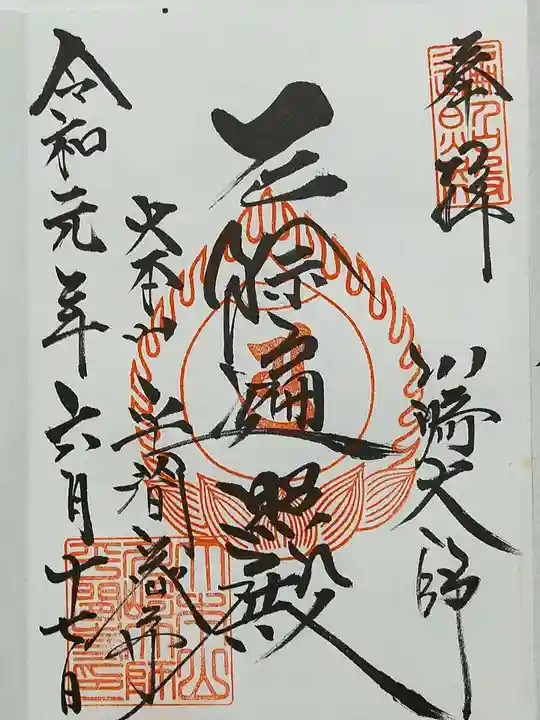 奉拝
川崎大師
厄除遍照殿
大本山
平間
令和元年六月十七日
大本山
川崎大師
平間寺印